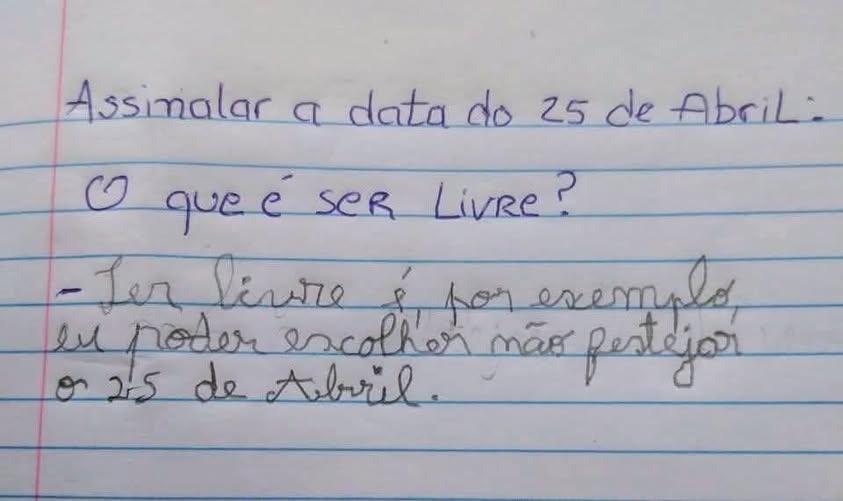 Assinalar a data do 25 de Abril:
O que é ser livre?
- Ser livre é, por exemplo,
eu poder escolher não festejar
o 25 de Abril.